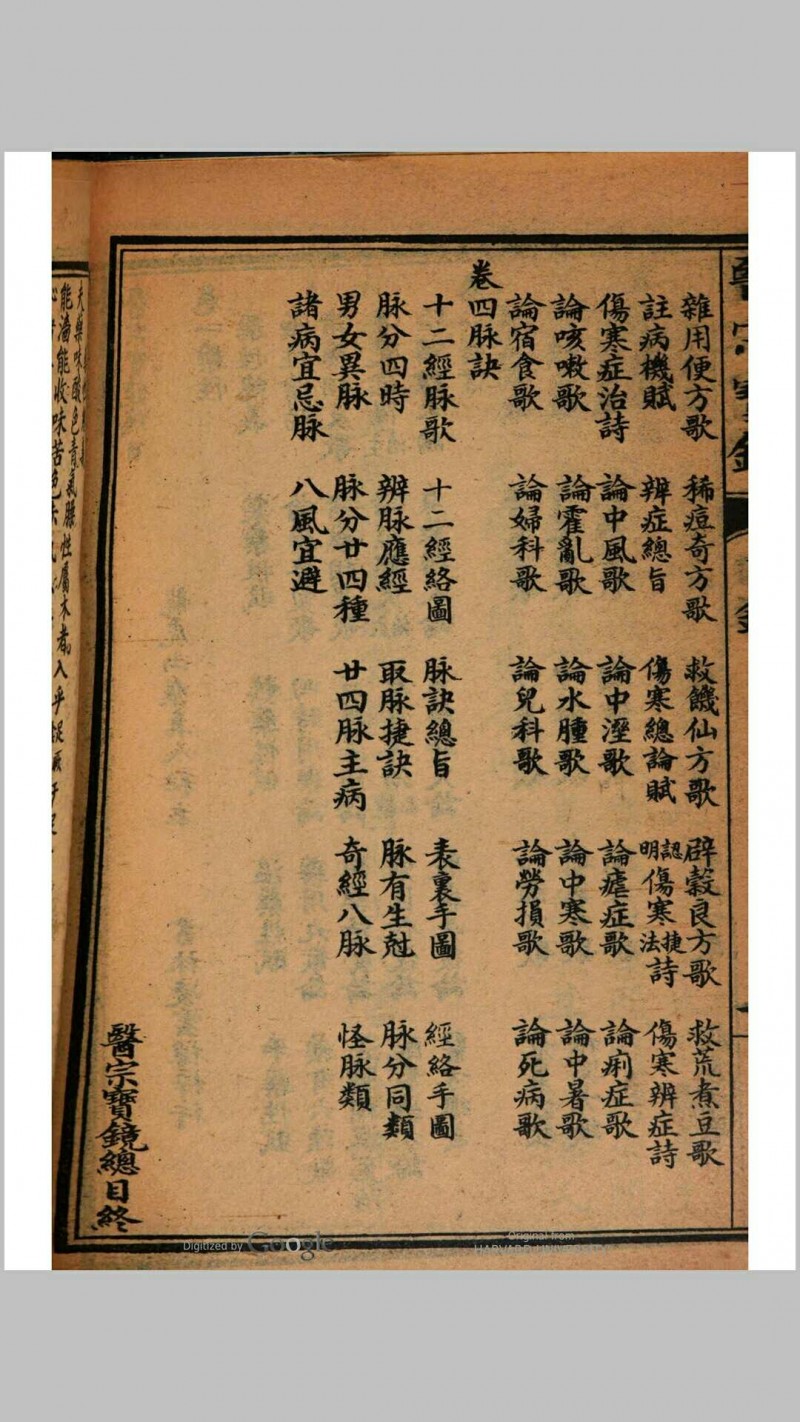 雜用便方歌 稀痘奇方歌 救饑仙方歌 辟穀良方歌 救荒煮豆歌
註病機賦 辨症總旨 傷寒總論賦 認明傷寒捷法詩 傷寒辨症詩
傷寒症治詩 論中風歌 論中溼歌 論瘧症歌 論痢症歌
論咳嗽歌 論霍亂歌 論水腫歌 論中寒歌 論中暑歌
論宿食歌 論婦科歌 論兒科歌 論勞損歌 論死病歌
卷四脉訣
十二經脉歌 十二經絡圖 脉訣總旨 表裏手圖 經絡手圖
脉分四時 辨脉應經 取脉捷訣 脉有生尅 脉分同類
男女異脉 脉分廿四種 廿四脉主病 奇經八脉 怪脉類
諸病宜忌脉 八風宜避
醫宗寶鏡總目終
夫藥味酸色青氣臊性屬木者入乎足厥
Digitized by Google
Original from
HARVARD UNIVERSITY